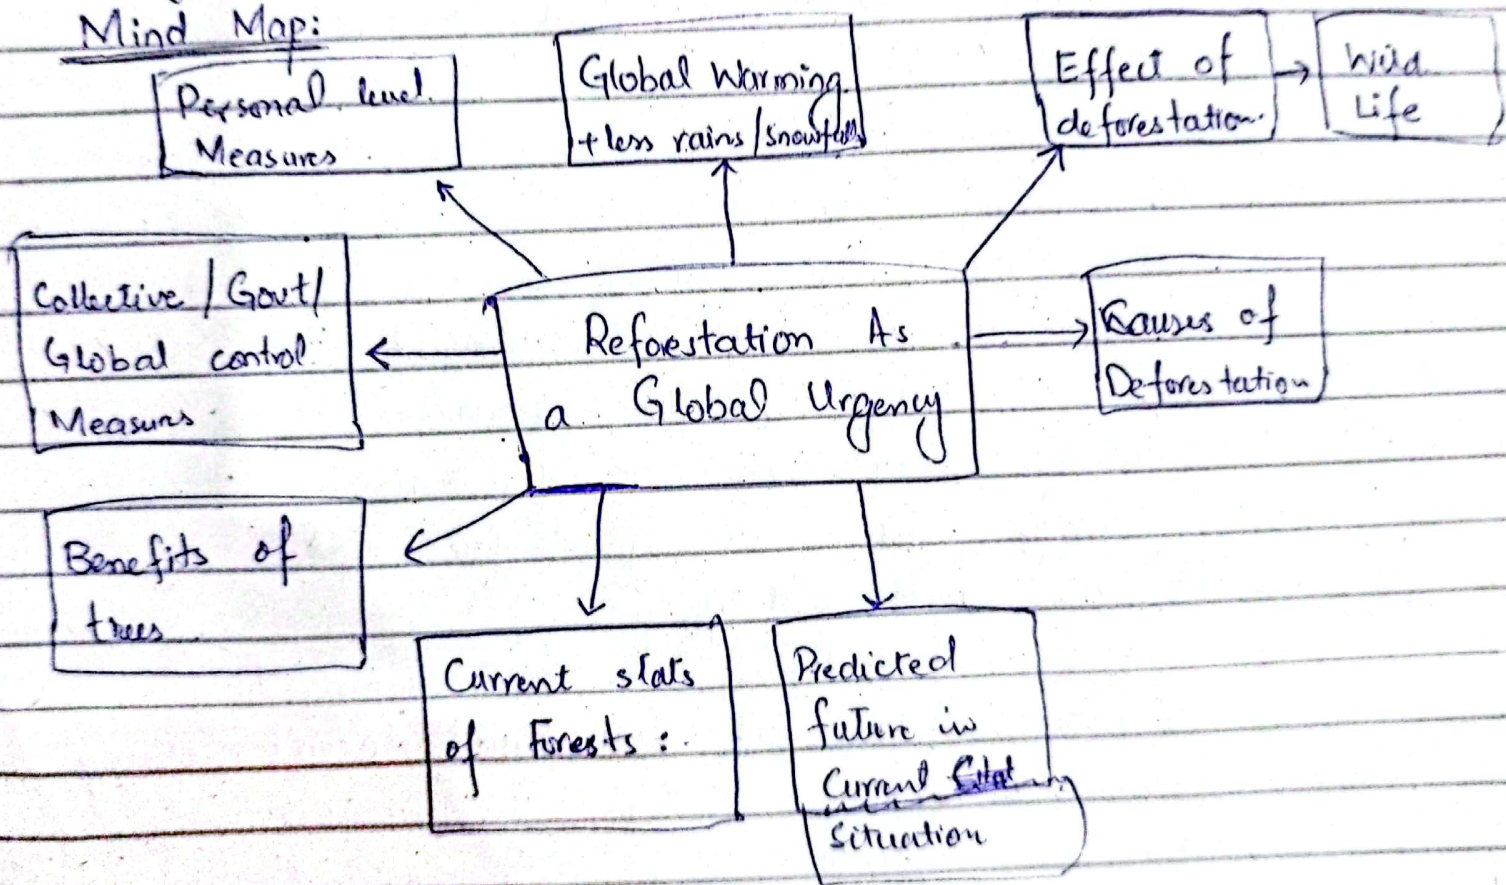 Mind Map:
Personal level
Measures
Global Warming
+ less rains / snowfalls
Effect of
deforestation.
Wild
Life
Collective / Govt /
Global control
Measures
Reforestation As
a Global Urgency
Causes of
Deforestation
Benefits of
trees
Current stats
of Forests :
Predicted
future in
Current
Situation